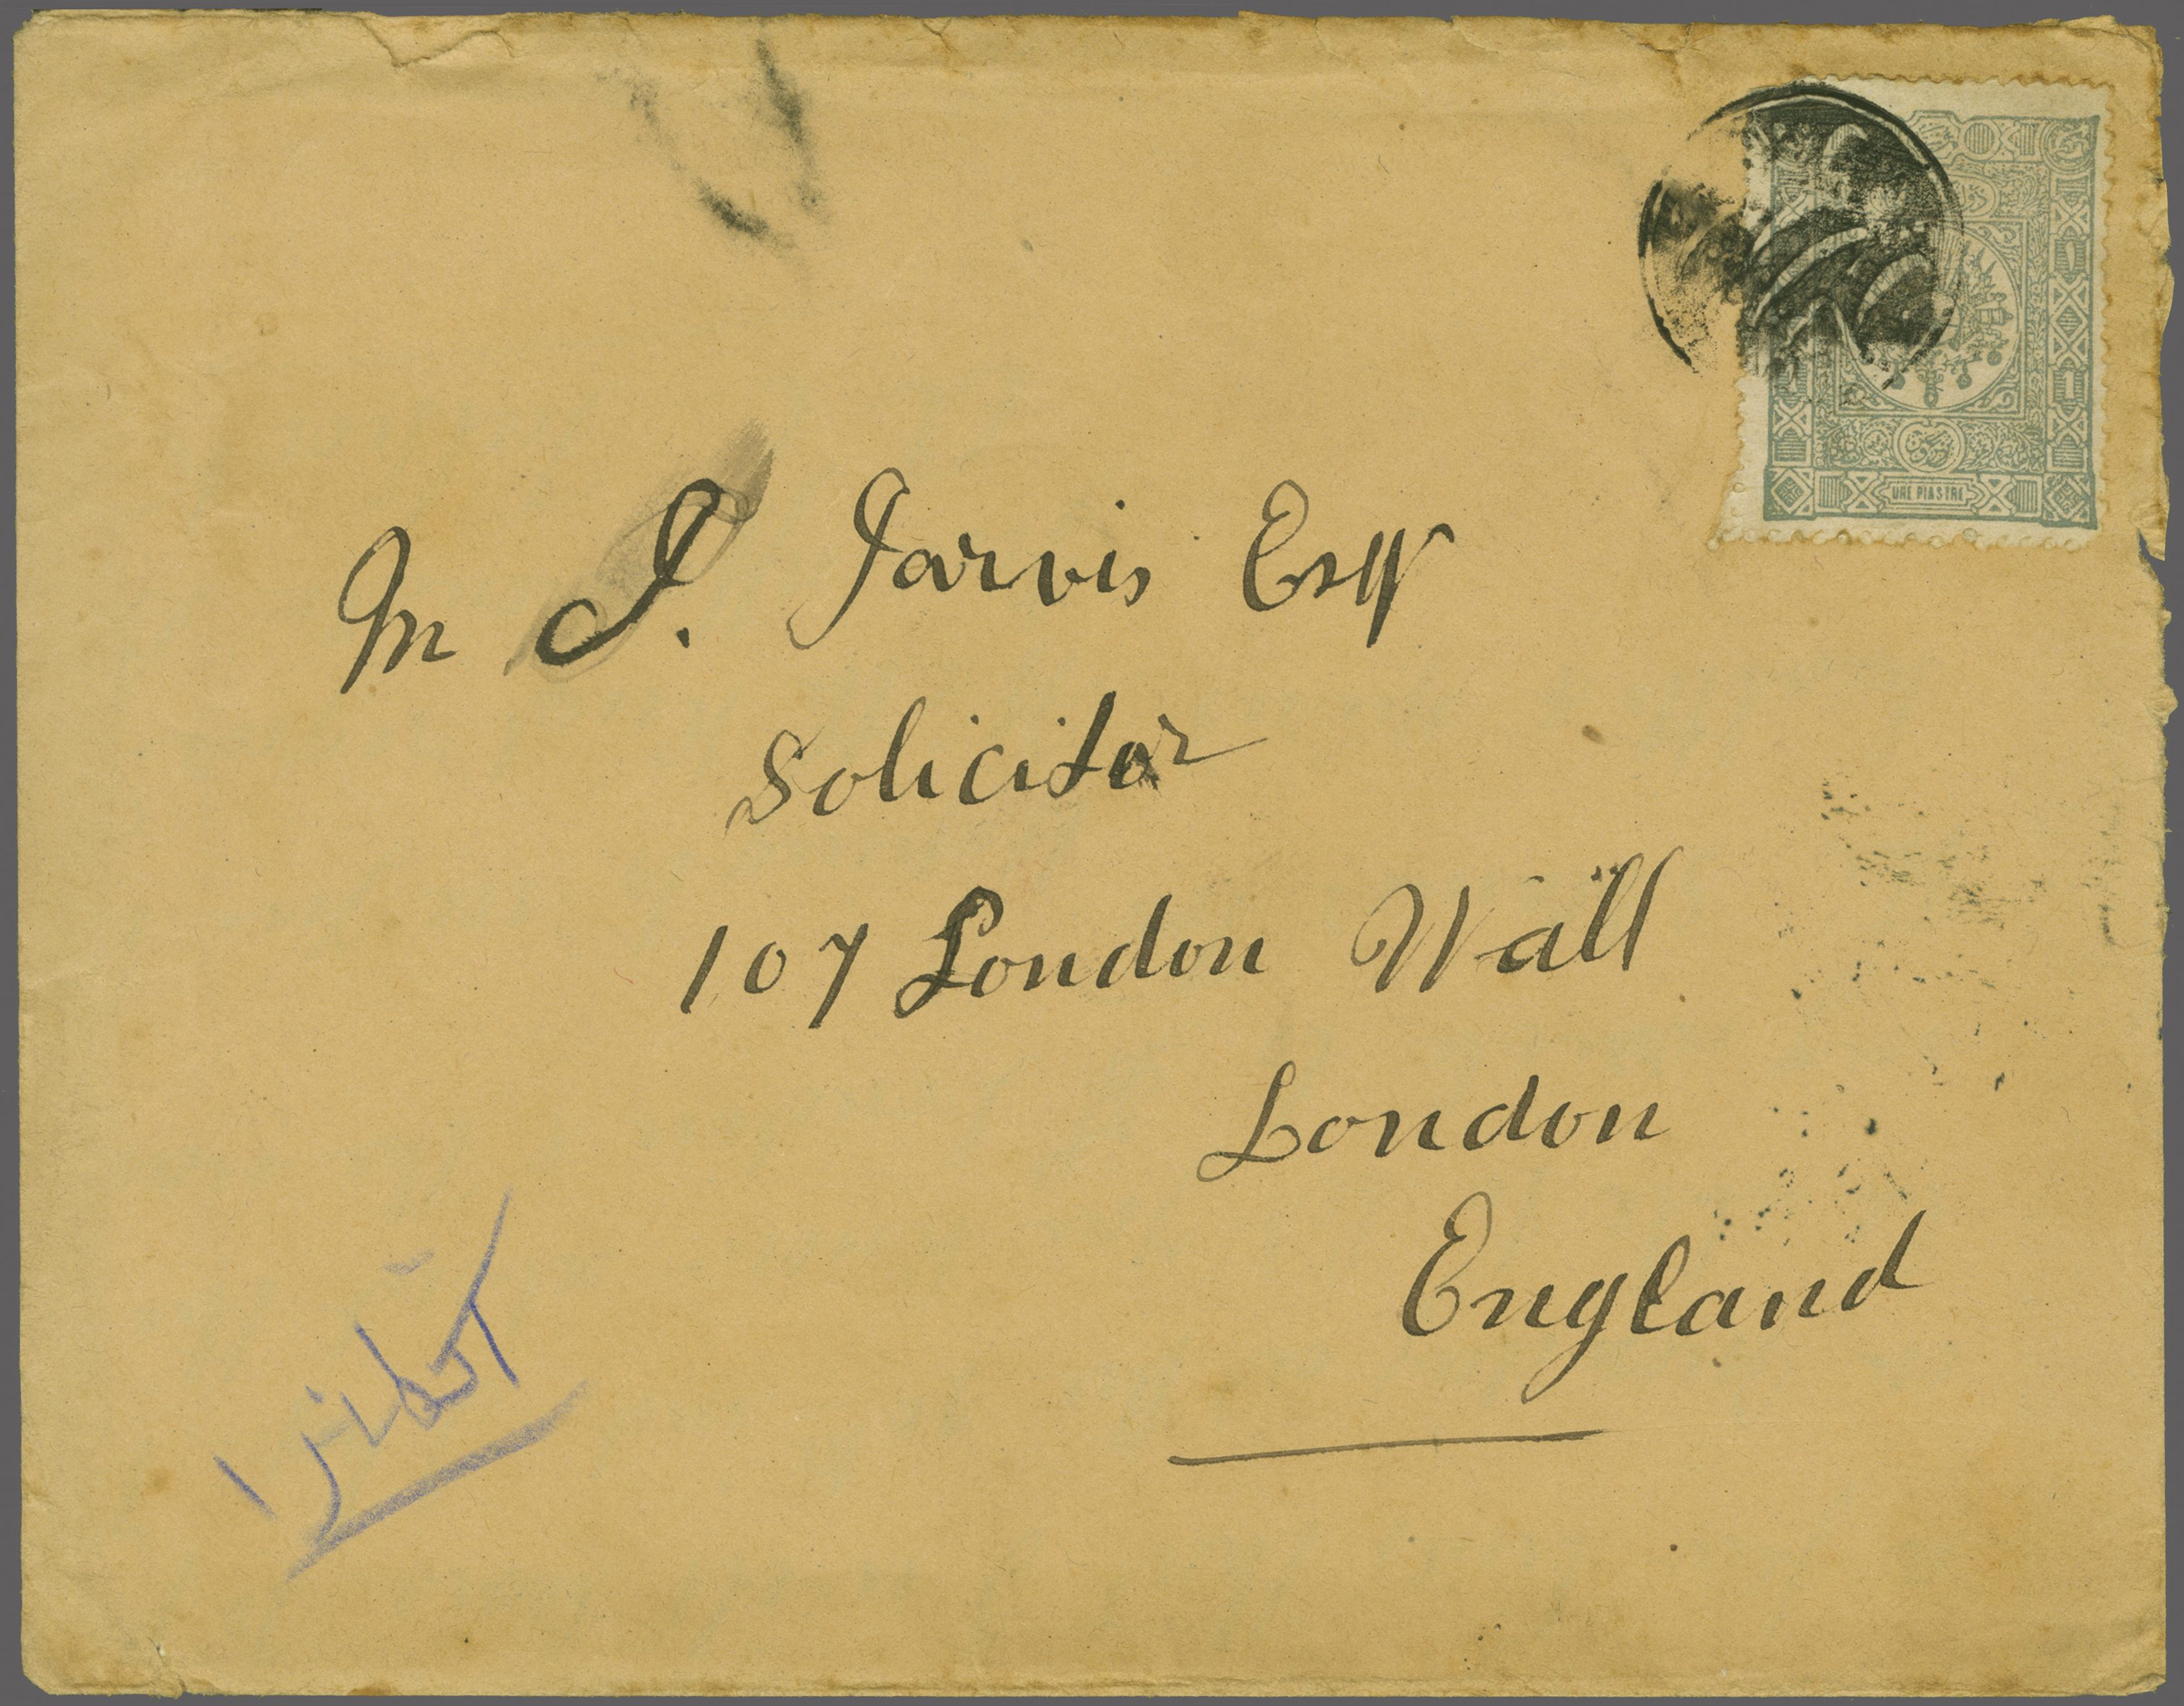 UNE PIASTRE
M J. Jarvis Esqr
Solicitor
107 London Wall
London
England
انكلترا